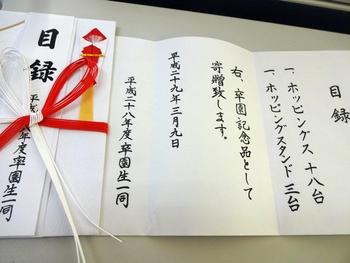 目録
平成二十八年度卒園生一同
目録
一、ホッピングス 十八台
一、ホッピングスタンド 三台
右、卒園記念品として
寄贈致します。
平成二十九年三月九日
平成二十八年度卒園生一同